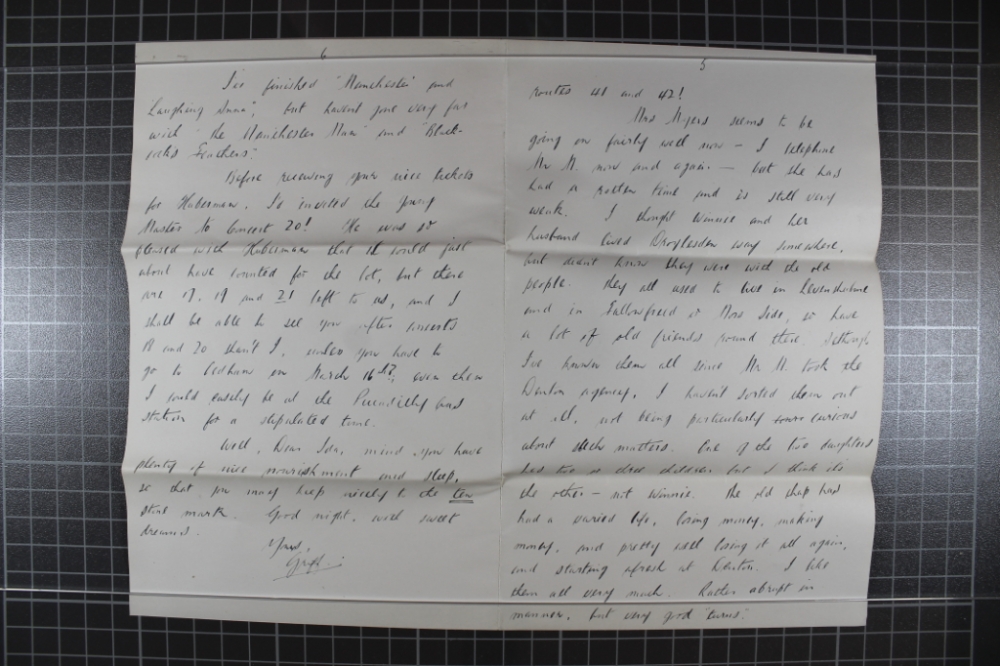 5
routes 41 and 42!
Mrs Myers seems to be
going on fairly well now – I telephone
Mr M. now and again – but she has
had a rotten time and is still very
weak. I thought Winnie and her
husband lived Droylesden way somewhere,
but didn't know they were with the old
people. They all used to live in Levenshulme
and in Fallowfield or Moss Side, so have
a lot of old friends round there. Although
I've known them all since Mr M. took the
Denton agency, I haven't sorted them out
at all, not being particularly curious
about such matters. One of the two daughters
has two or three children but I think it's
the other – not Winnie. The old chap has
had a varied life, losing money, making
money, and pretty well losing it all again,
and starting afresh at Denton. I like
them all very much. Rather abrupt in
manner, but very good "turns".
6
I've finished "Manchester" and
"Laughing Annie", but haven't gone very far
with "the Manchester Man" and "Black-
cock's Feathers".
Before receiving your nice tickets
for Huberman, I'd invited the young
Master to Concert 20! He was so
pleased with Huberman that it could just
about have counted for the lot, but there
are 17, 19 and 21 left to us, and I
shall be able to see you after concerts
18 and 20 shan't I, unless you have to
go to Oldham on March 16th?, even then
I could easily be at the Piccadilly bus
station for a stipulated time.
Well, Dear Ida, mind you have
plenty of nice nourishment and sleep,
so that you may keep nicely to the ten
stone mark. Good night, with sweet
dreams.
Yours,